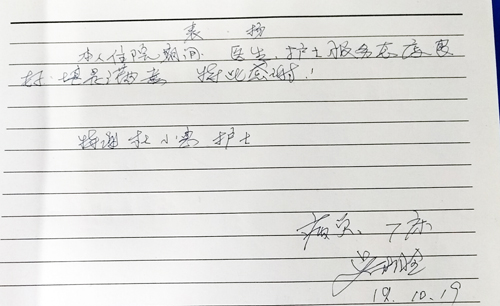 表·扬
本人住院期间 医生、护士服务态度良
好.堪是满意 特此感谢!
特谢 杜小 护士
病员、7床
19.10.19